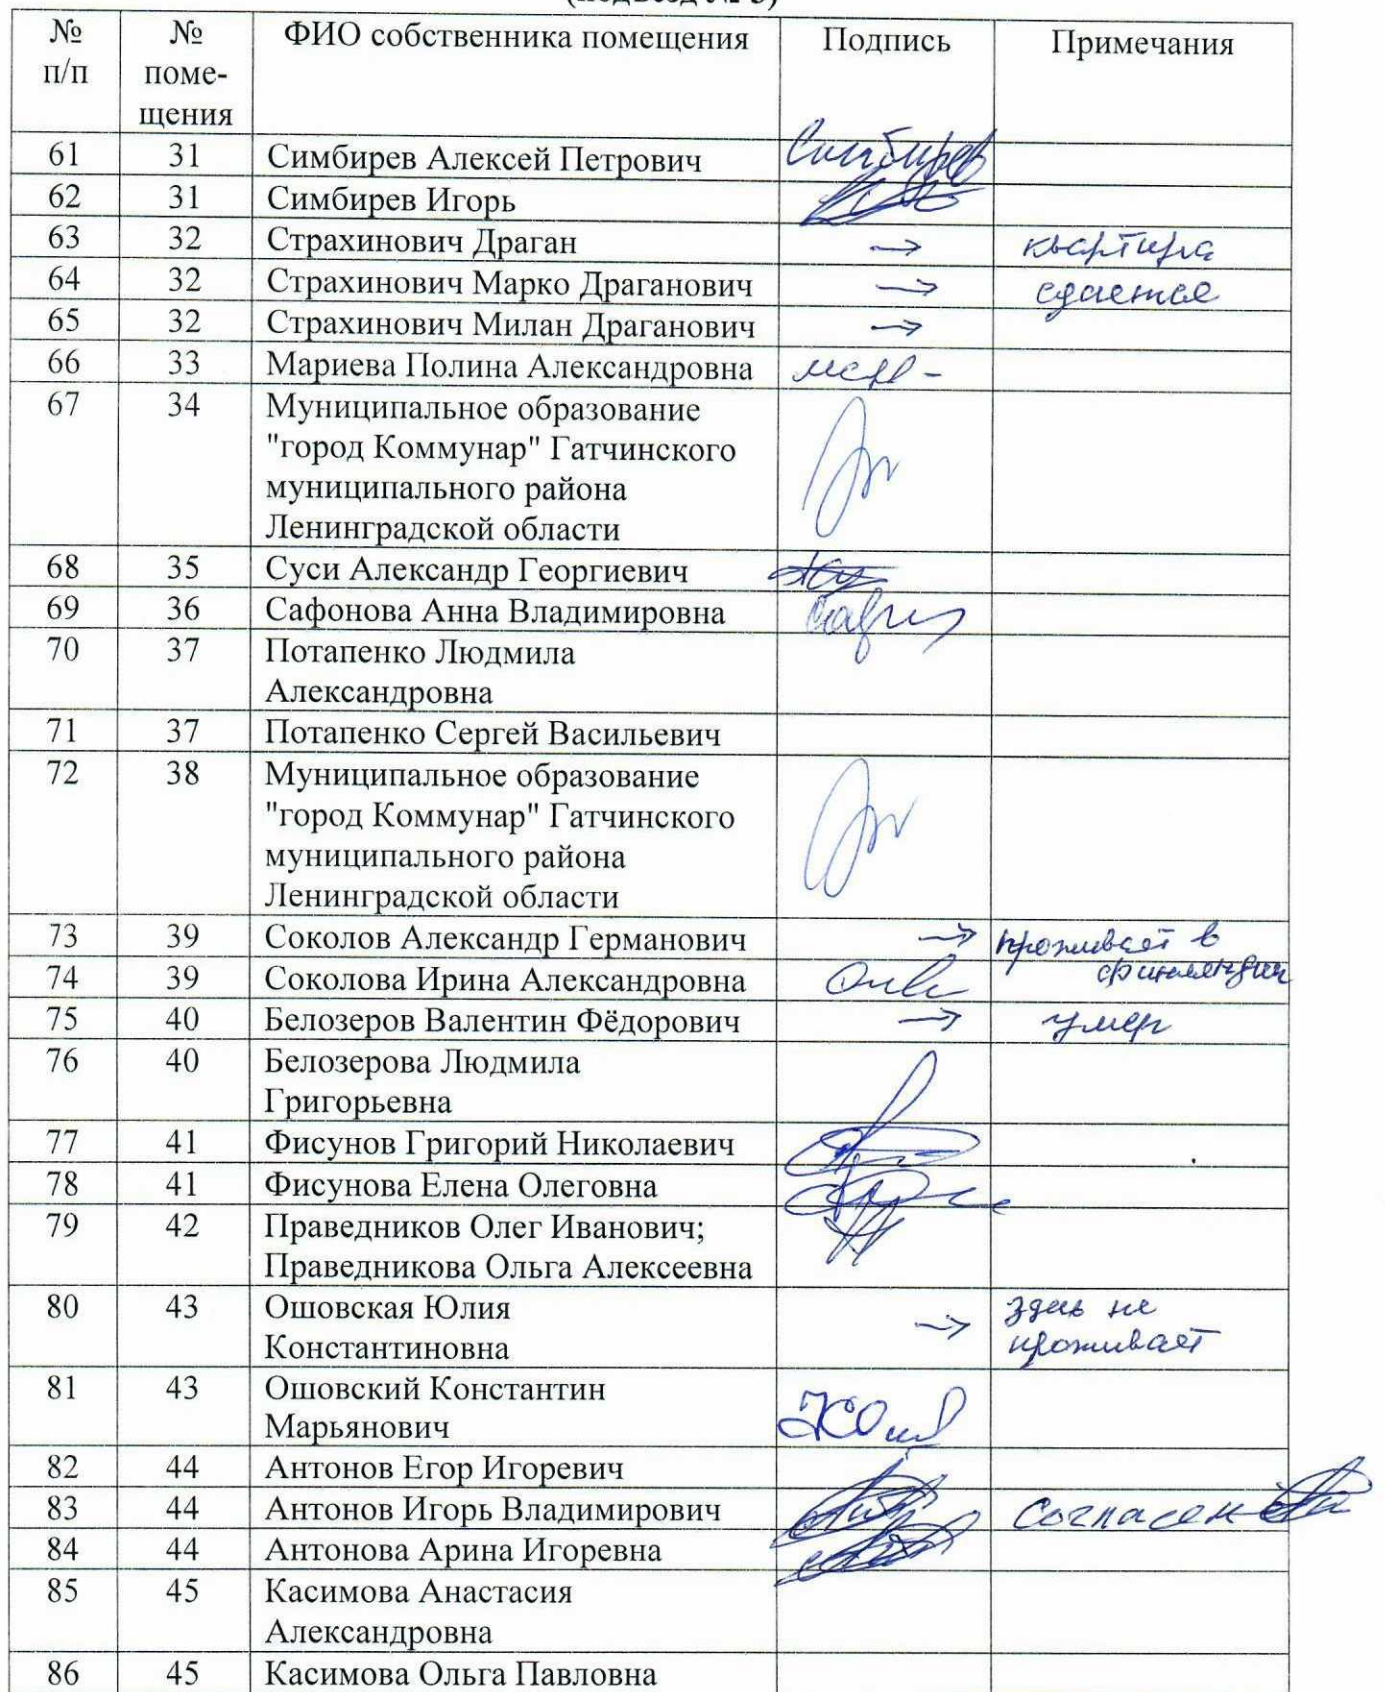 (подъезд № 3)
№ п/п № поме-щения ФИО собственника помещения Подпись Примечания
61 31 Симбирев Алексей Петрович Симбирев
62 31 Симбирев Игорь
63 32 Страхинович Драган → квартира
64 32 Страхинович Марко Драганович → сдается
65 32 Страхинович Милан Драганович →
66 33 Мариева Полина Александровна
67 34 Муниципальное образование
"город Коммунар" Гатчинского
муниципального района
Ленинградской области
68 35 Суси Александр Георгиевич
69 36 Сафонова Анна Владимировна
70 37 Потапенко Людмила
Александровна
71 37 Потапенко Сергей Васильевич
72 38 Муниципальное образование
"город Коммунар" Гатчинского
муниципального района
Ленинградской области
73 39 Соколов Александр Германович → проживает в
финляндии
74 39 Соколова Ирина Александровна
75 40 Белозеров Валентин Фёдорович → умер
76 40 Белозерова Людмила
Григорьевна
77 41 Фисунов Григорий Николаевич
78 41 Фисунова Елена Олеговна
79 42 Праведников Олег Иванович;
Праведникова Ольга Алексеевна
80 43 Ошовская Юлия → здесь не
Константиновна проживает
81 43 Ошовский Константин
Марьянович
82 44 Антонов Егор Игоревич
83 44 Антонов Игорь Владимирович согласен
84 44 Антонова Арина Игоревна
85 45 Касимова Анастасия
Александровна
86 45 Касимова Ольга Павловна